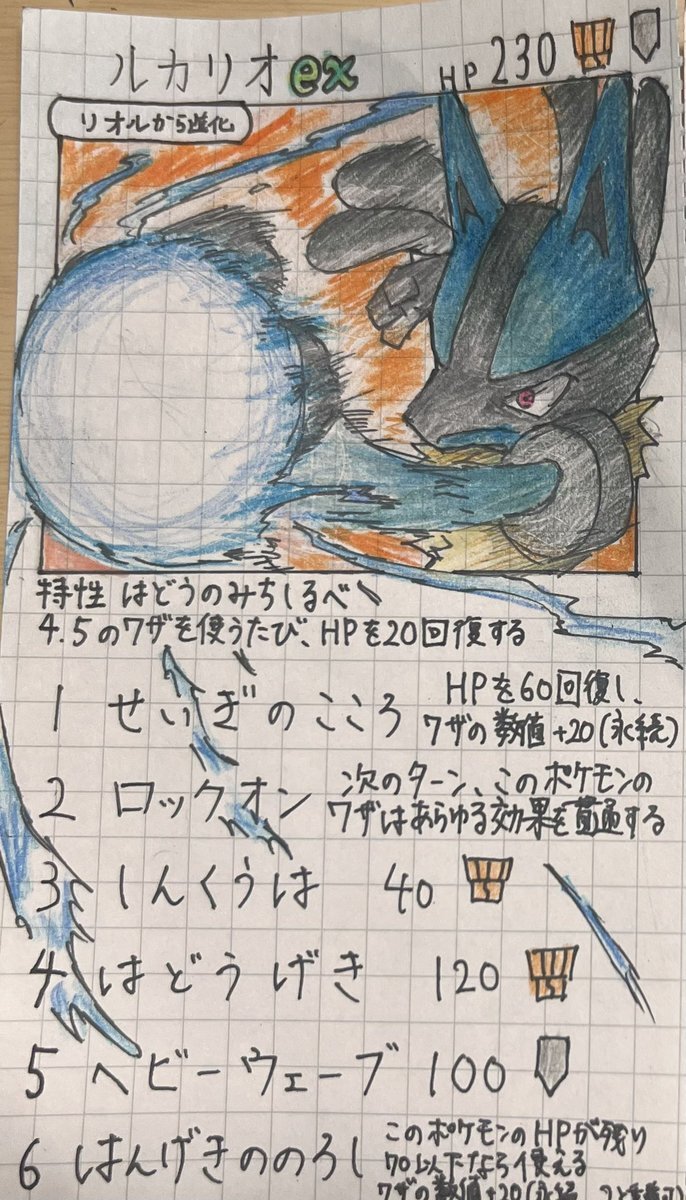 ルカリオex HP 230
リオルから進化
特性 はどうのみちしるべ
4.5のワザを使うたび、HPを20回復する
1 せいぎのこころ HPを60回復し、
ワザの数値+20(永続)
2 ロックオン 次のターン、このポケモンの
ワザはあらゆる効果を貫通する
3 しんくうは 40
4 はどうげき 120
5 ヘビーウェーブ 100
6 はんげきののろし このポケモンのHPが残り
70以下なら使える
ワザの数値+20(永続